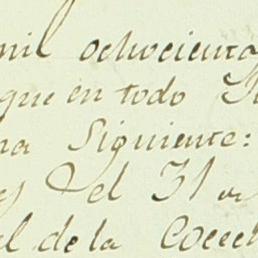 mil ochocienta
que en todo
na Siguiente:
el 31
al de la Cocech